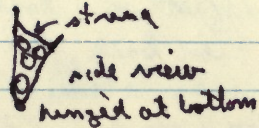 strung
side view
hinged at bottom